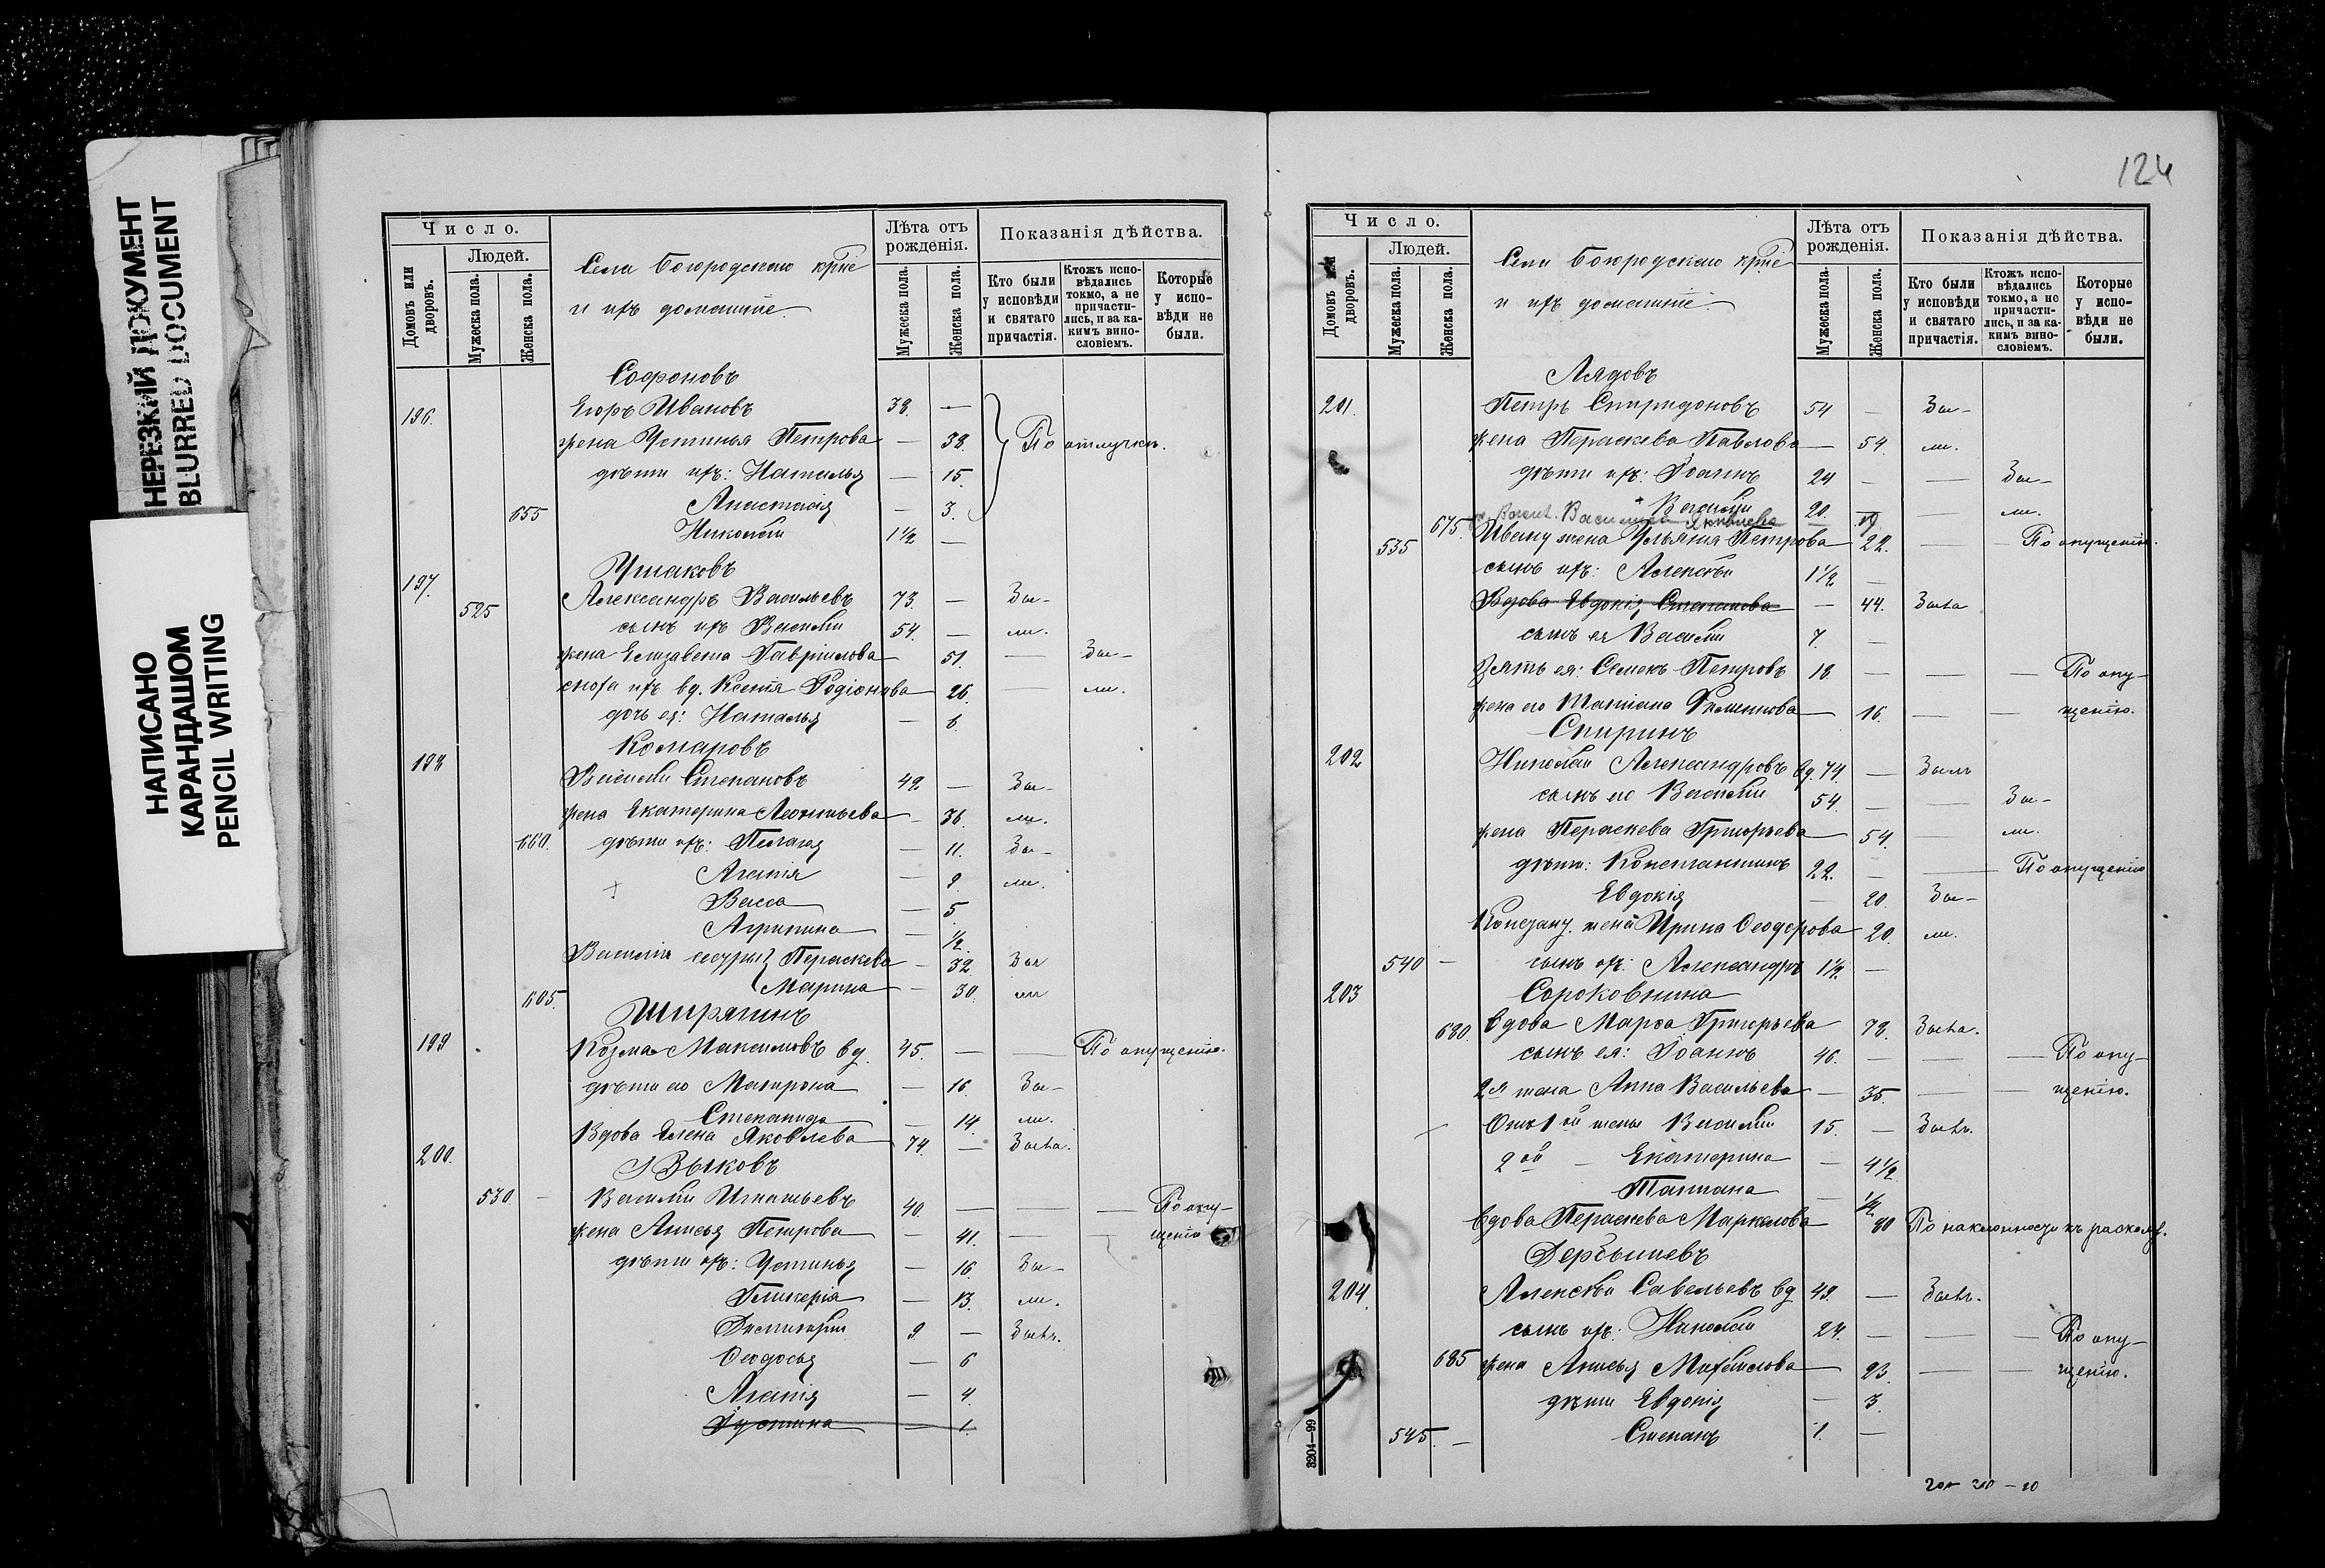 НЕРЕЗКИЙ ДОКУМЕНТ
BLURRED DOCUMENT
НАПИСАНО
КАРАНДАШОМ
PENCIL WRITING
Число.
Людей.
Домовъ или дворовъ.
Мужеска пола.
Женска пола.
Села Богородскаго крне
и ихъ домашніе
Лѣта отъ рожденія.
Мужеска пола.
Женска пола.
Показанія дѣйства.
Кто были у исповѣди и святаго причастія.
Ктожъ исповѣдались токмо, а не причастились, и за какимъ винословіемъ.
Которые у исповѣди не были.
Софоновъ
196. Егоръ Ивановъ 38. —
жена Устинья Петрова — 38. По отлучкѣ.
дѣти ихъ: Наталья — 15.
655 Анастасія — 3.
Николай 1½ —
Ушаковъ
197. 525 Александръ Васильевъ 73. — Бы-
сынъ ихъ Василій 54. — ли.
жена Елизавета Гавріилова 51. — Бы-
сноха ихъ вд. Ксенія Родіонова 26. — ли.
дочь ея: Наталья — 6.
Комаровъ
198 Василій Степановъ 42 — Бы-
жена Екатерина Леонтьева — 36. ли.
660. дѣти ихъ: Пелагея — 11. Бы-
Агапія — 9. ли.
Васса — 5
Агрипина — ½
Василія сестры Параскева — 32 Бы
605. Марина — 30. ли
Ширяпинъ
199 Козма Максимовъ вд. 45. — — По опущенію.
дѣти его Матрона — 16. Бы-
Степанида — 14. ли.
Вдова Елена Яковлева 74. — Была.
200. Зыковъ
530 — Василій Игнатьевъ 40. — — — По опу-
жена Анисья Петрова — 41. — — щенію
дѣти ихъ: Устинья — 16. Бы-
Гликерія — 13. ли.
Димитрій 9. — Былъ.
Ѳеодосья — 6
Агапія — 4.
Іустина — 1.
124
Число.
Людей.
Домовъ или дворовъ.
Мужеска пола.
Женска пола.
Села Богородскаго крне
и ихъ домашніе
Лѣта отъ рожденія.
Мужеска пола.
Женска пола.
Показанія дѣйства.
Кто были у исповѣди и святаго причастія.
Ктожъ исповѣдались токмо, а не причастились, и за какимъ винословіемъ.
Которые у исповѣди не были.
Лядовъ
201. Петръ Спиридоновъ 54 — Бы-
жена Параскева Павлова — 54. ли.
дѣти ихъ: Іоаннъ 24 — — Бы-
Василій 20. — ли.
Васил. Василиса Яковлева
535 675. Ивану жена Ульянія Петрова 22. — — По опущенію.
сынъ ихъ: Алексѣй 1½ —
Вдова Евдокія Степанова — 44. Была
сынъ ея Василій 7. —
Зять ея: Семенъ Петровъ 18. — — — По опу-
жена его Татіана Филиппова — 16. — — щенію.
Спиринъ
202 Николай Александровъ вд. 74. — Былъ
сынъ его Василій 54. — — Бы-
жена Параскева Григорьева 54. ли.
дѣти: Константинъ 22. — — По опущенію
Евдокія — 20 Бы-
Констану. жена Ирина Ѳеодорова 20. ли.
540 — сынъ ихъ: Александръ 1½. —
203 Сороковнина
680. вдова Марѳа Григорьева 78. Была.
сынъ ея: Іоаннъ 46. — — По опу-
2я жена Анна Васильева — 35. — — щенію.
Отъ 1ой жены Василій 15. — Былъ.
2ой — Екатерина — 4½
Татіана — ½
вдова Параскева Маркелова 80 По наклонности къ расколу.
Дербышевъ
204. Алексѣй Савельевъ вд. 49. — Былъ.
сынъ ихъ: Николай 24. — — — По опу-
685 жена Анисья Михайлова 23. — — щенію.
дѣти Евдокія — 3.
545. — Степанъ 1. —
3204—99